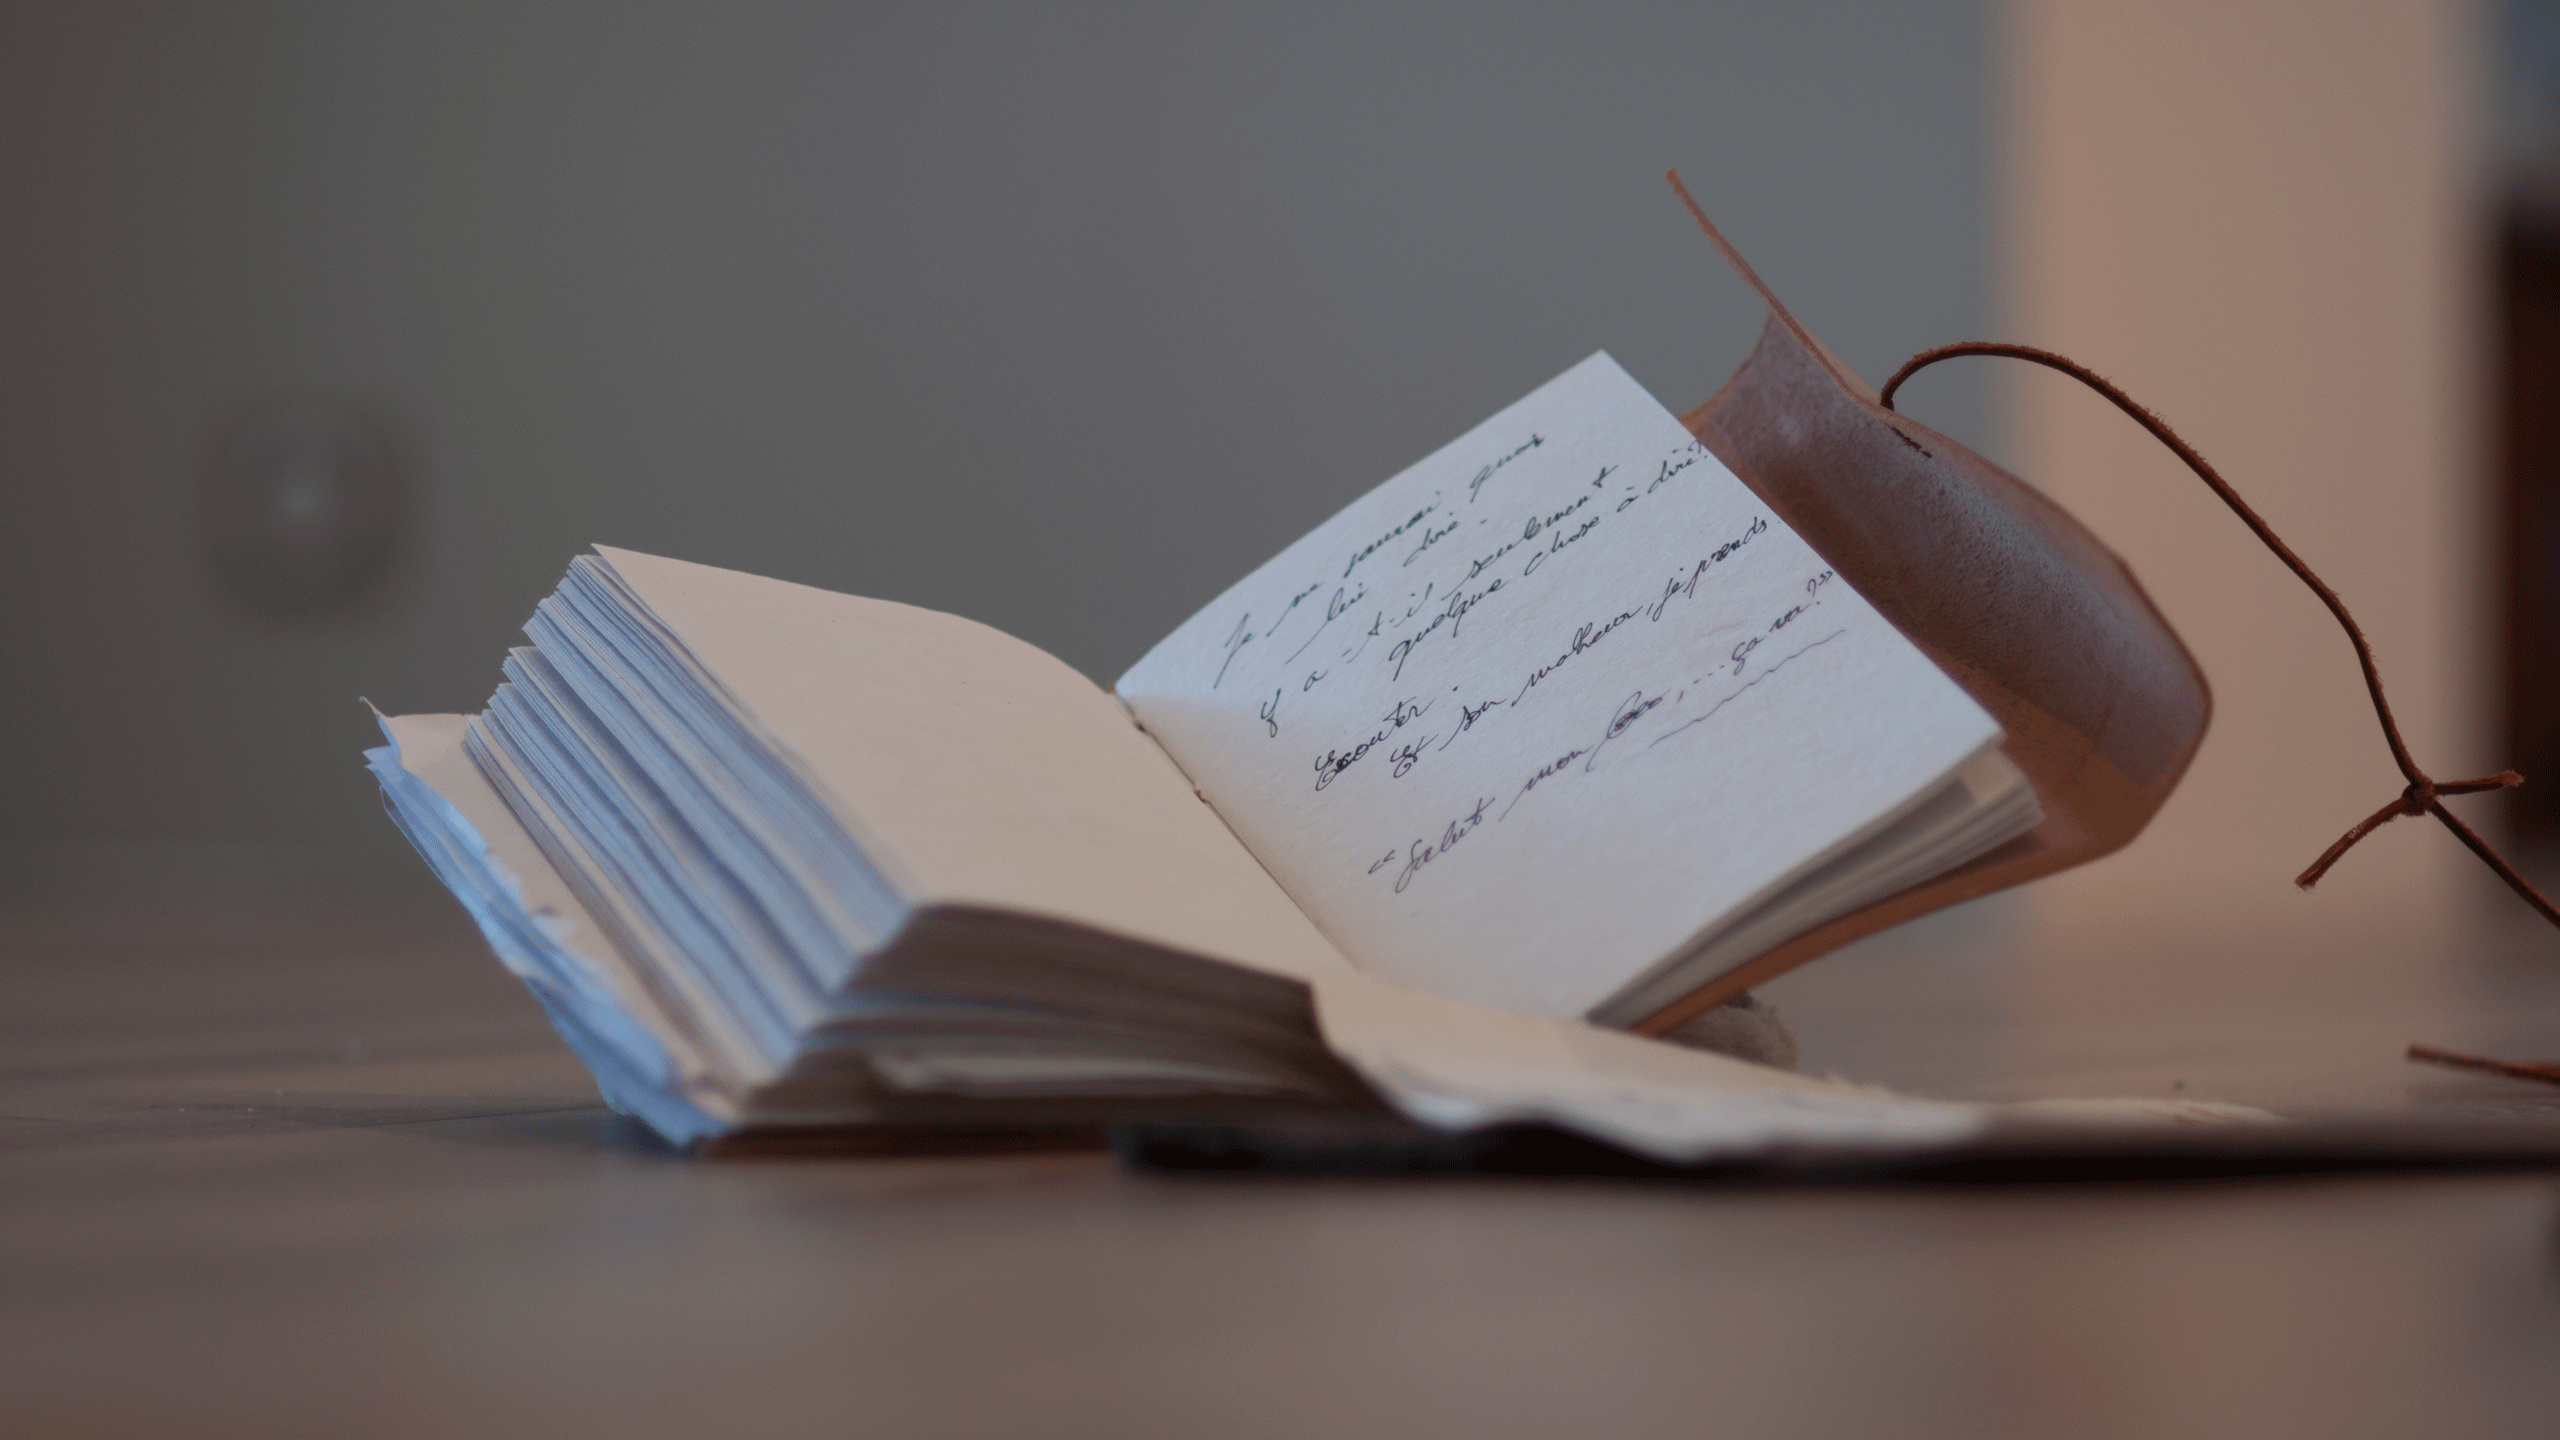 Je ne saurai quoi
lui dire.
Y a-t-il seulement
quelque chose à dire?
Écouter.
Et su malheur, je prends.
"Salut mon Coco,... ça va?"